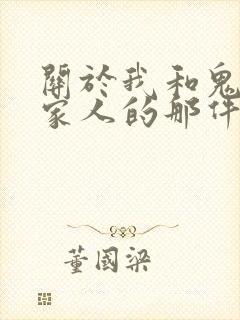 關於我和鬼
家人的那件
董國梁